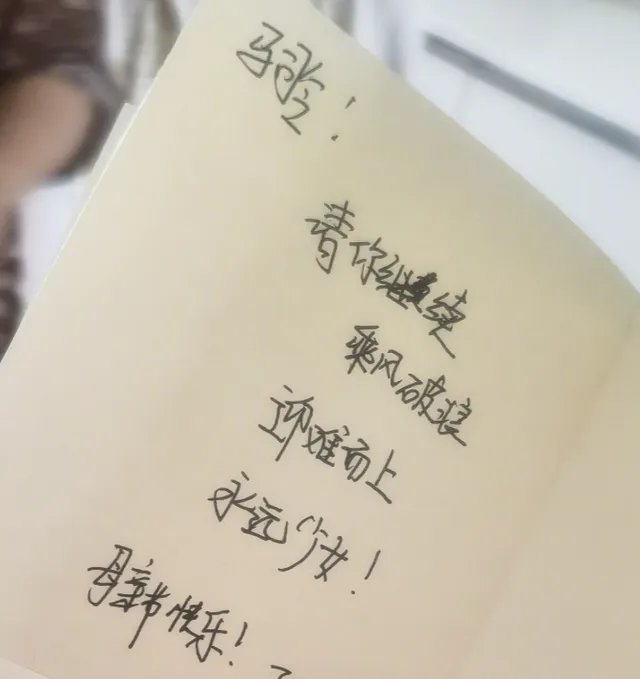 马冰!
请你继续
乘风破浪
迎难而上
永远少女!
母亲节快乐!